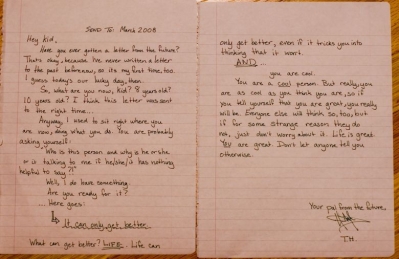 SEND TO: March 2008
Hey kid,
Have you ever gotten a letter from the future?
That's okay, because I've never written a letter
to the past before now, so it's my first time, too.
I guess today's our lucky day, then.
So, what are you now, kid? 8 years old?
10 years old? I think this letter was sent
to the right time...
Anyway, I used to sit right where you
are now, doing what you do. You are probably
asking yourself:
"Who is this person and why is he or she
or is talking to me if he/she/it has nothing
helpful to say?!"
Well, I do have something.
Are you ready for it?
... Here goes:
It can only get better.
What can get better? LIFE. Life can
only get better, even if it tricks you into
thinking that it won't.
AND...
you are cool.
You are a cool person. But really, you
are as cool as you think you are, so if
you tell yourself that you are great, you really
will be. Everyone else will think so, too, but
if for some strange reason they do
not, just don't worry about it. Life is great.
You are great. Don't let anyone tell you
otherwise.
Your pal from the future,
T.H.